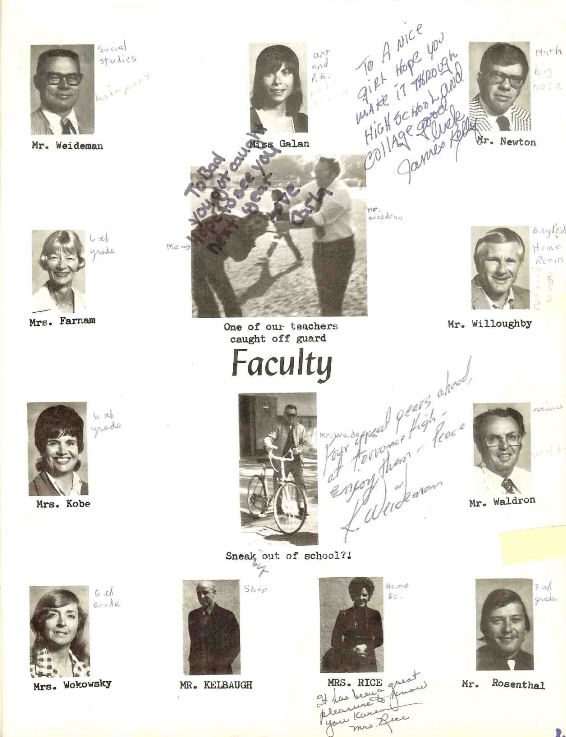 Social
studies
Mr. Weideman
art
and
P.E.
Miss Galan
TO A NICE
GIRL HOPE YOU
MAKE IT THROUGH
HIGH SCHOOL AND
COLLAGE good
luck
James Kelly
Math
big
nose
Mr. Newton
To Bad
you got caught
Hope to see you
next year
Love
Me →
Mr.
Waldron
6th
grade
Mrs. Farnam
One of our teachers
caught off guard
English
Home
Room
Mr. Willoughby
Faculty
6th
grade
Mrs. Kobe
Mr. Weideman
Four great years ahead,
at Torrance High -
Enjoy them - Peace
K. Weideman
science
Mr. Waldron
Sneak out of school?!
by
6th
Grade
Mrs. Wokowsky
Shop
MR. KELBAUGH
Home
Ec.
MRS. RICE
It has been a great
pleasure to know
you
Mrs. Rice
7th
grade
Mr. Rosenthal